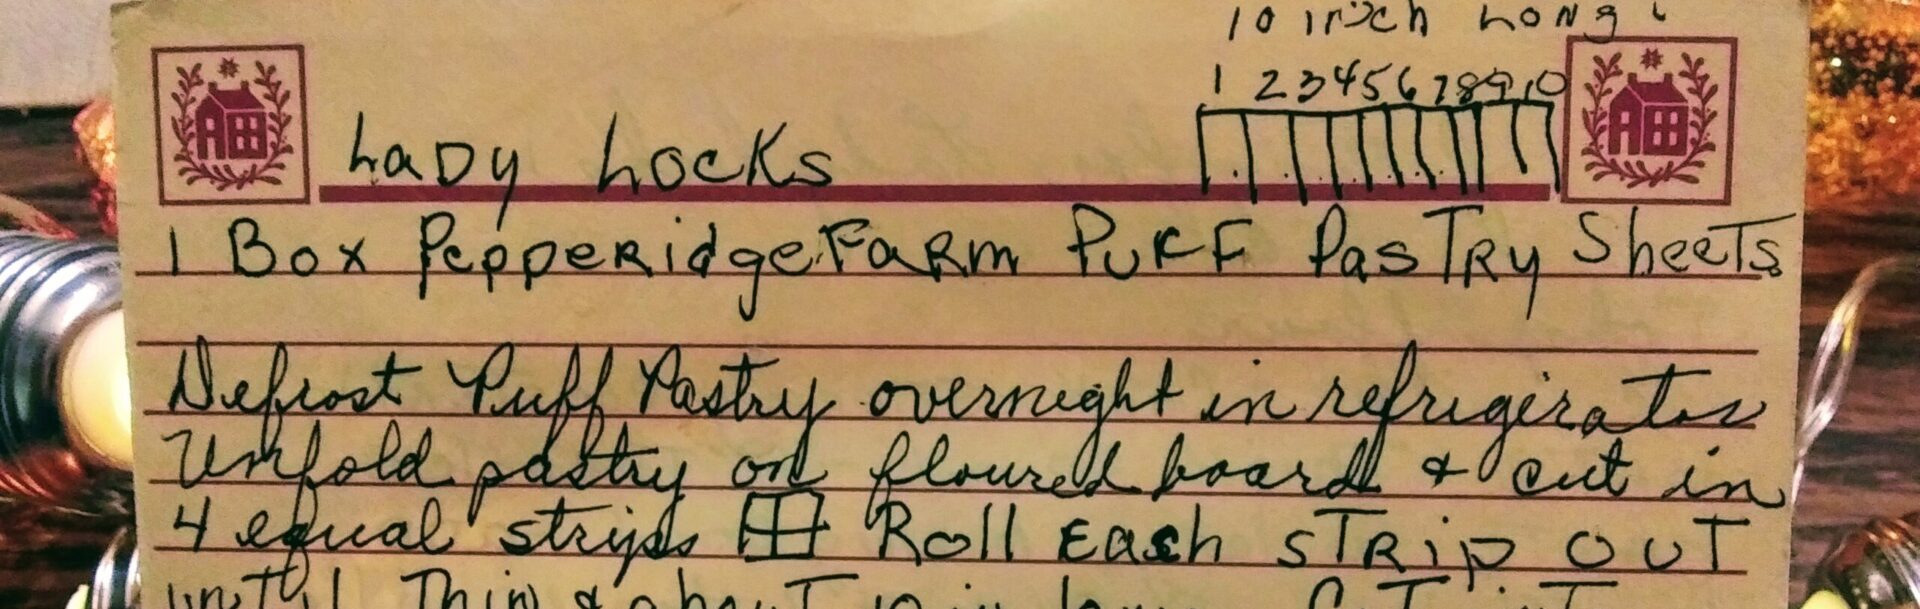 10 inch Long
1 2 3 4 5 6 7 8 9 10
Lady Locks
1 Box Pepperidge Farm Puff Pastry Sheets
Defrost Puff Pastry overnight in refrigerator
Unfold pastry on floured board & cut in
4 equal strips Roll Each strip out
until Thin & about 10 in long. Cut it